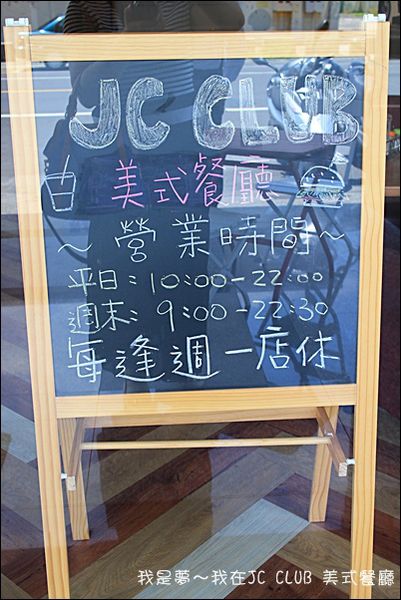 JC CLUB
美式餐廳
~營業時間~
平日：10:00-22:00
週末：9:00-22:30
每逢週一店休
我是夢～我在JC CLUB 美式餐廳